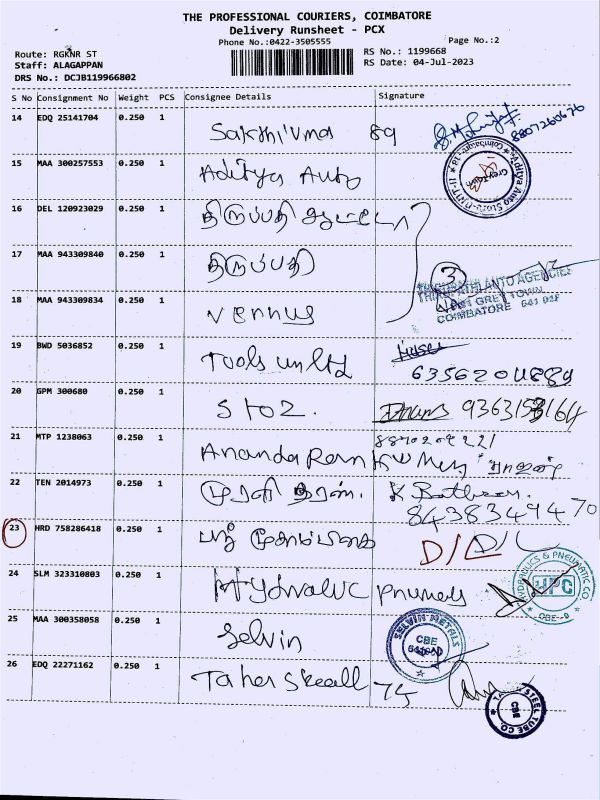 THE PROFESSIONAL COURIERS, COIMBATORE
Delivery Runsheet - PCX
Phone No.:0422-3505555 Page No.:2
Route: RGKNR ST RS No.: 1199668
Staff: ALAGAPPAN RS Date: 04-Jul-2023
DRS No.: DCJB119966802
S No Consignment No Weight PCS Consignee Details Signature
14 EDQ 25141704 0.250 1 Sakthi Uma 89 8807260676
15 MAA 300257553 0.250 1 Aditya Auto
16 DEL 120923029 0.250 1 திருப்பதி ஆட்டோ
17 MAA 943309840 0.250 1 திருப்பதி 3
THIRUPATHI AUTO AGENCIES
GREY TOWN
COIMBATORE 641 018
18 MAA 943309834 0.250 1 Vennus
19 BWD 5036852 0.250 1 Tools unltd
20 GPM 300680 0.250 1 Stoz.
21 MTP 1238063 0.250 1 Ananda Ram 8870209221
22 TEN 2014973 0.250 1 முரளி 8438349470
23 HRD 758286418 0.250 1 D/L D/L
24 SLM 323310803 0.250 1 Hydraulic Pnumeds
HYDRAULICS & PNEUMATIC CO
HPC
CBE-9
25 MAA 300358058 0.250 1 Selvin
SELVIN METALS
CBE
26 EDQ 22271162 0.250 1 Taher Steall 74
STEEL TUBE CO.
CBE